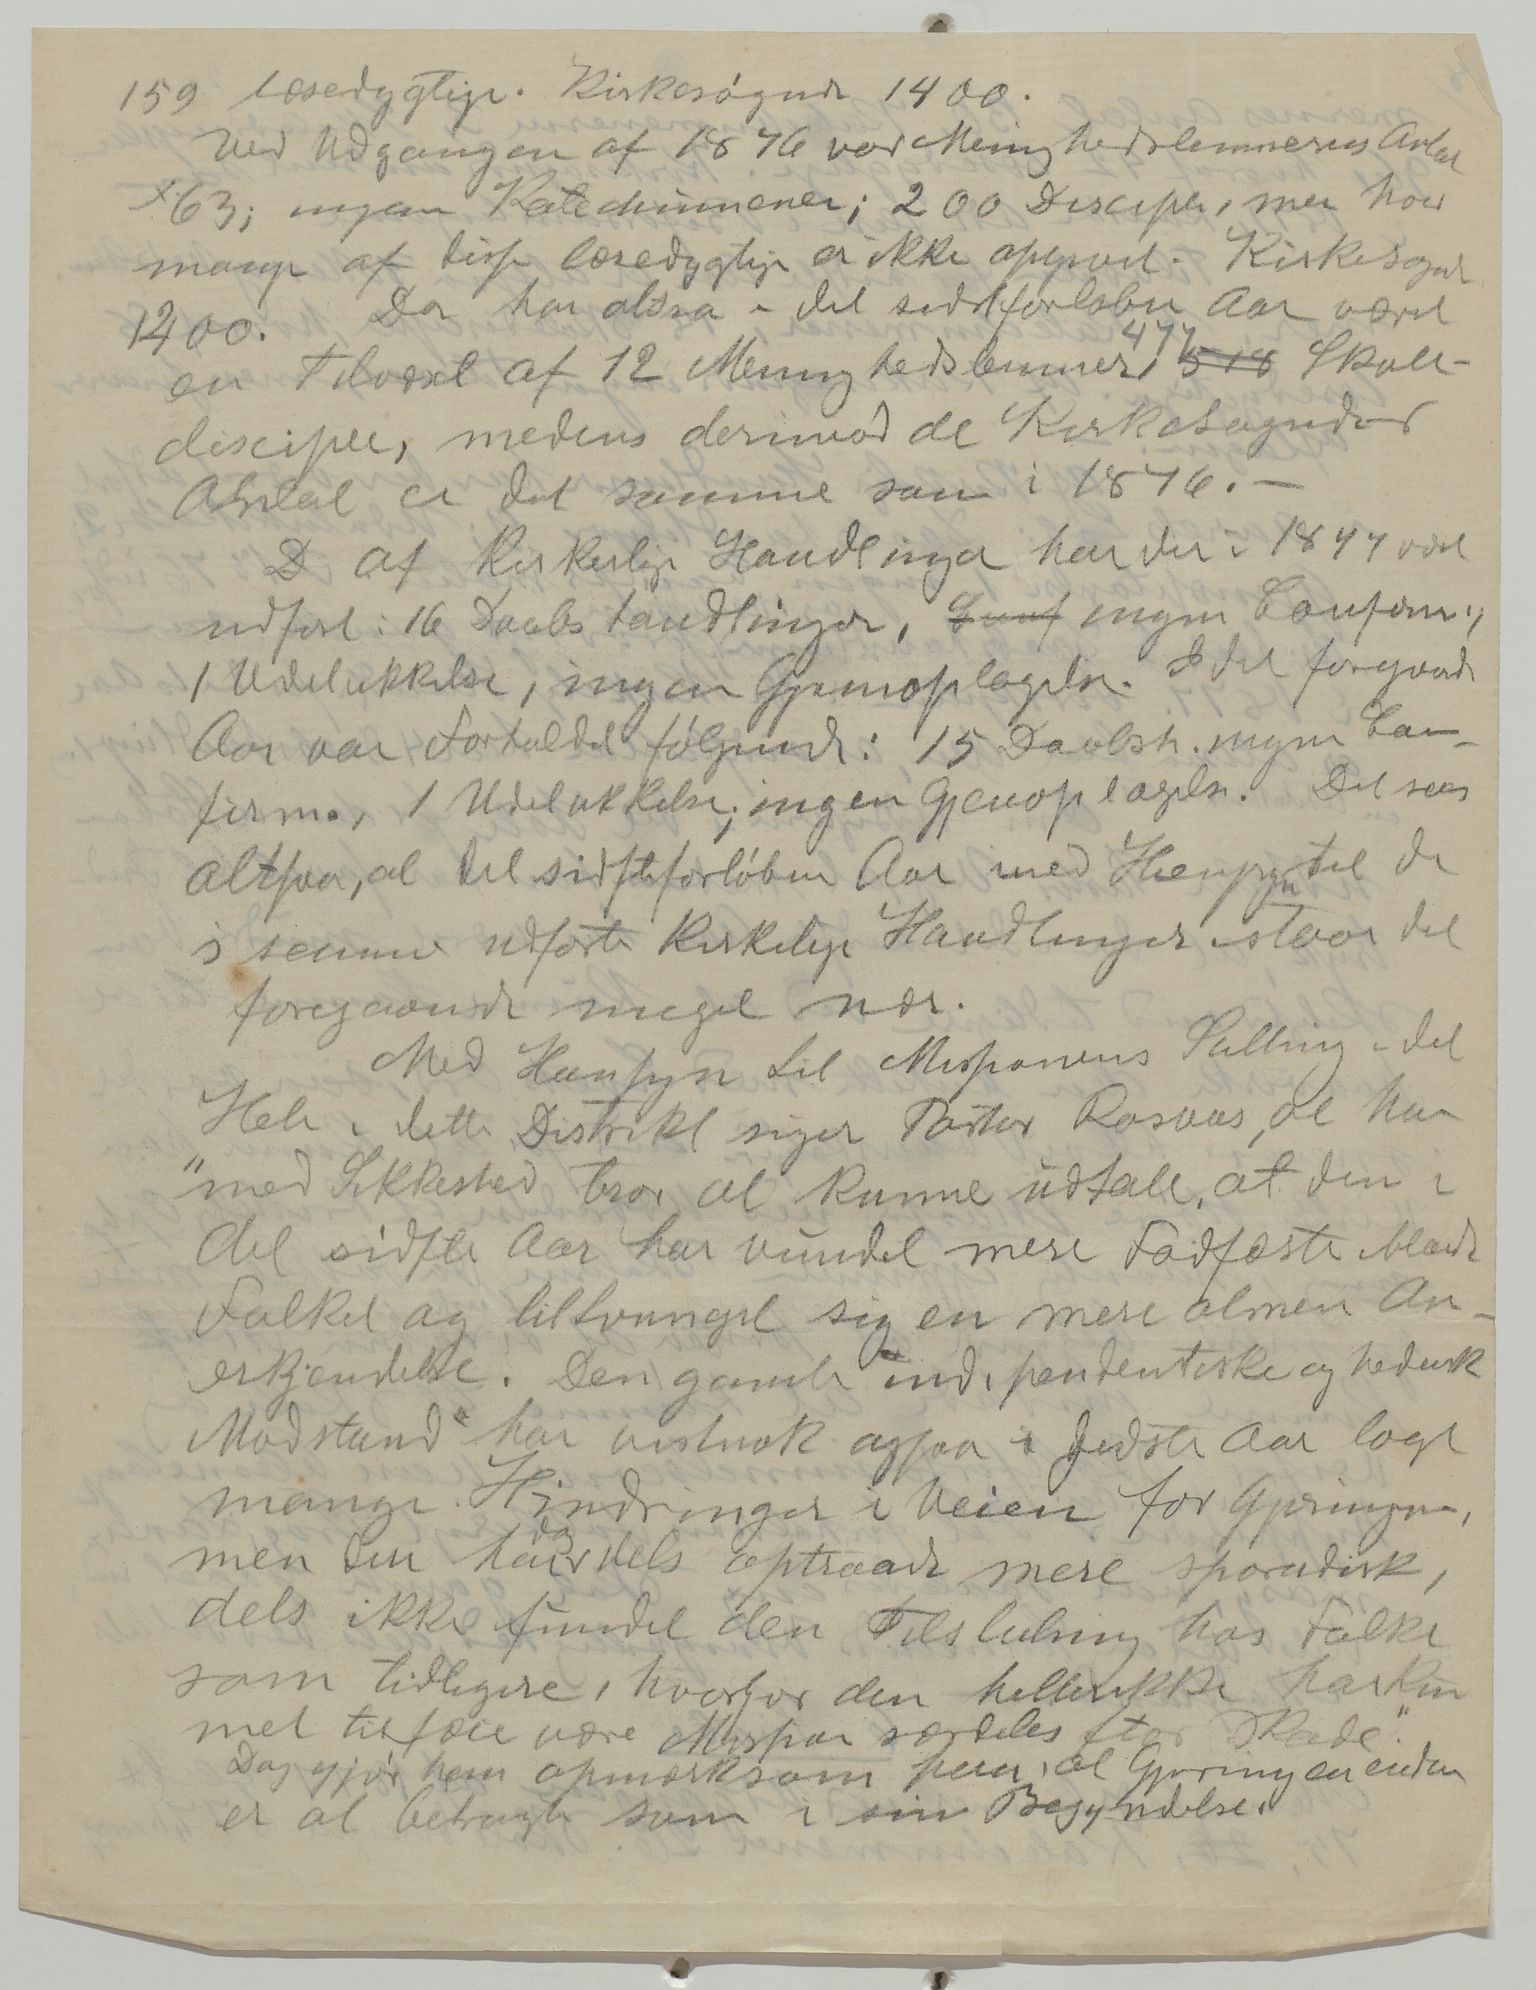 159 læsedygtige. Kirkesøgnde 1400.
Ved Udgangen af 1876 var Menighedslemmernes Antal
×63; ingen Katechumener; 200 Disciple, men hvor
mange af disse læsedygtige er ikke opgivet. Kirkesøgnde
1400. Der har altsaa i det sidstforløbne Aar været
en Tilvæxt af 12 Menighedslemmer, 477 518 Skole-
disciple, medens derimod de Kirkesøgndes
Antal er det samme som i 1876.—
D Af Kirkelige Handlinger har der i 1877 vært
udført: 16 Daabshandlinger, Conf ingen Confirm.,
1 Udelukkelse, ingen Gjenoptagelse. I det foregaaende
Aar var Forholdet følgende: 15 Daabsh. ingen Con-
firm., 1 Udelukkelse; ingen Gjenoptagelse. Det sees
altsaa, at det sidstforløbne Aar med Hensyn til de
i samme udførte Kirkelige Handlinger staar det
foregaaende meget nær.
Med Hensyn til Missionens Stilling i det
Hele i dette Distrikt siger Pastor Rosaas, at han
"med Sikkerhed tror at kunne udtale, at den i
det sidste Aar har vundet mere Fodfæste blandt
Folket og tiltvunget sig en mere almen An-
erkjendelse. Den gamle independentiske og hedensk
Modstand har vistnok ogsaa i sidste Aar lagt
mange Hindringer i Veien for Gjerningen,
men den har da dels optraadt mere sporadisk,
dels ikke fundet den Tilslutning hos Folket
som tidligere, hvorfor den heller ikke har kun
net tilføie vore Mission særdeles stor Skade".
Dog gjør han opmærksom paa, at Gjerningen endnu
er at betragte som i sin Begyndelse.